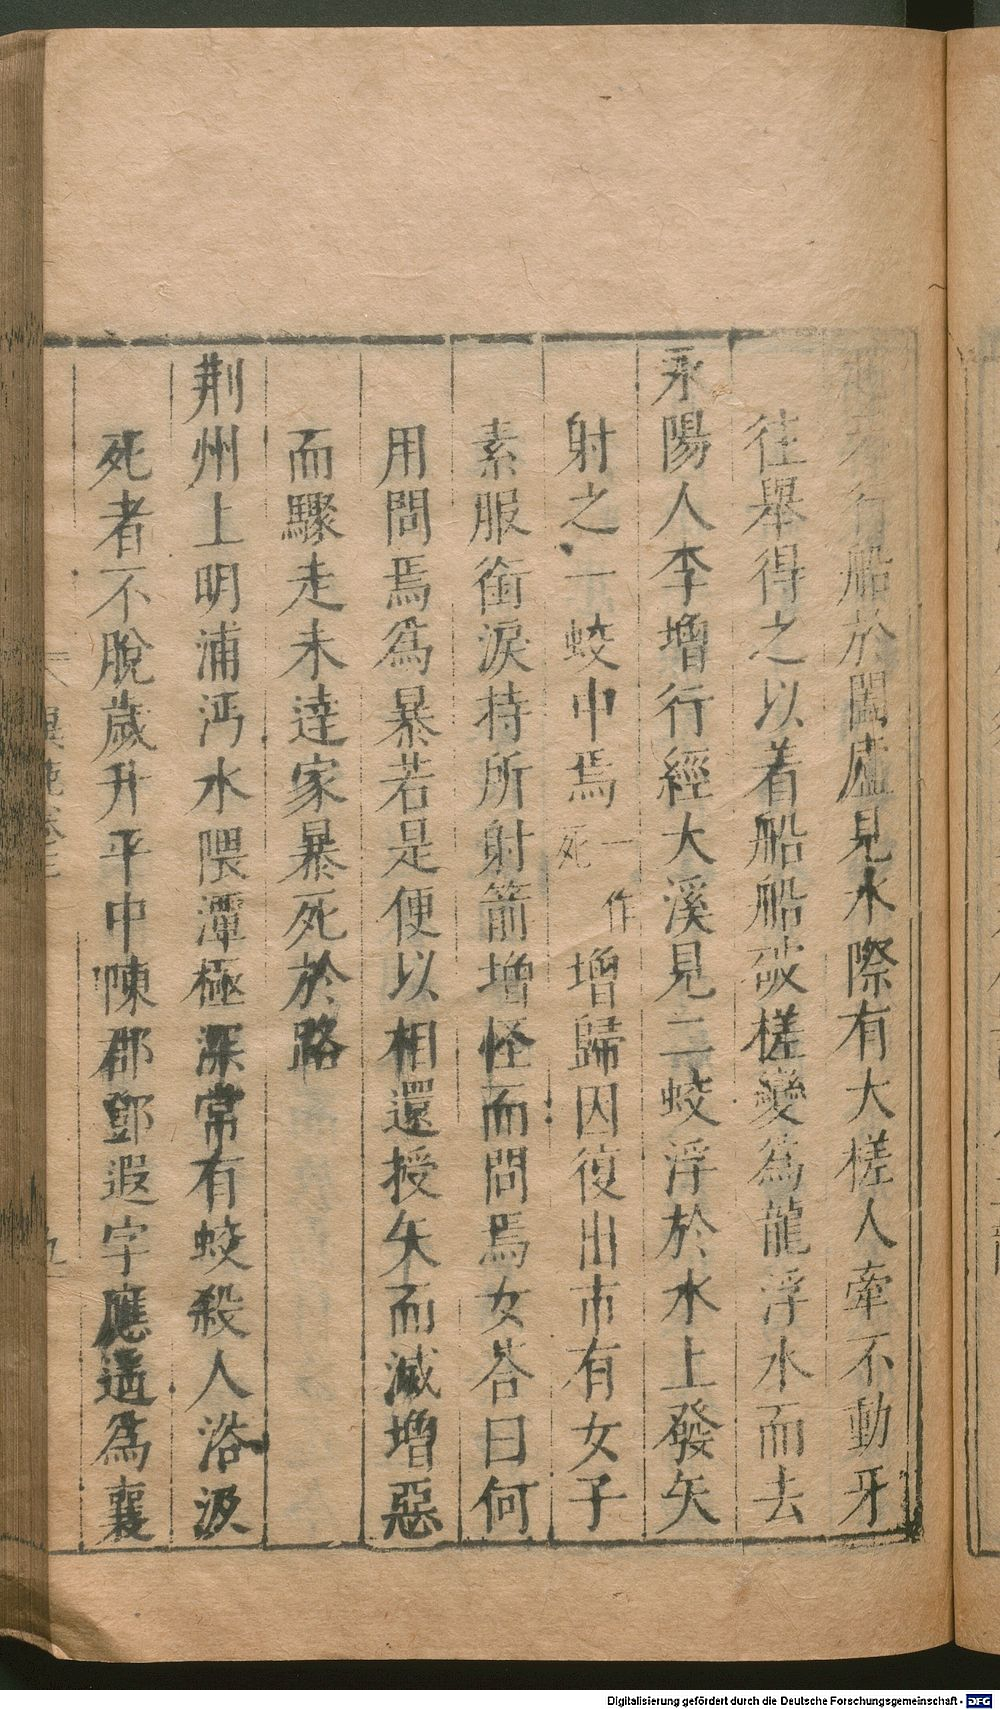 牙行船於闔廬見水際有大槎人牽不動牙
往舉得之以着船船破槎變為龍浮水而去
永陽人李增行經大溪見二蛟浮於水上發矢
射之一蛟中焉一作死增歸因復出市有女子
素服銜淚持所射箭增怪而問焉女荅曰何
用問焉為暴若是便以相還授矢而滅增惡
而驟走未達家暴死於路
荆州上明浦沔水隈潭極深常有蛟殺人浴汲
死者不脫歲升平中陳郡鄧遐字應遥為襄
異苑卷三
九
Digitalisierung gefördert durch die Deutsche Forschungsgemeinschaft - DFG